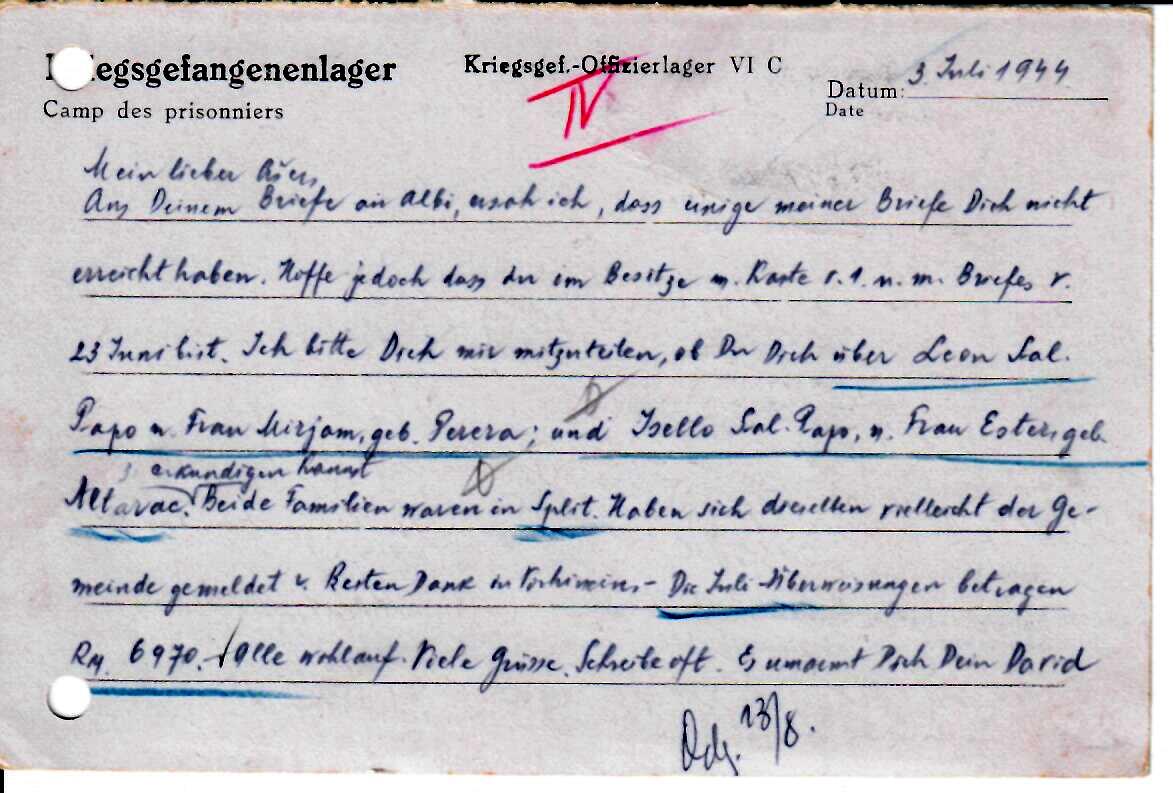 Kriegsgefangenenlager
Camp des prisonniers
Kriegsgef.-Offizierlager VI C
IV
Datum: 3 Juli 1944
Date
Mein lieber Ašer,
Aus Deinem Briefe an Albi, ersah ich, dass einige meiner Briefe Dich nicht
erreicht haben. Hoffe jedoch dass du im Besitze m. Karte v. 1. u. m. Briefes v.
23 Juni bist. Ich bitte Dich mir mitzuteilen, ob Du Dich über Leon Sal.
Papo u. Frau Mirjam, geb. Perera; und Isello Sal. Papo, u. Frau Ester, geb.
erkundigen kannst
Altarac. Beide Familien waren in Split. Haben sich dieselben vielleicht der Ge-
meinde gemeldet? Besten Dank im Vorhinein - Die Juli-Überweisungen betragen
RM. 6970.- Alle wohlauf. Viele Grüsse. Schreibe oft. Es umarmt Dich Dein David
Odg. 13/8.